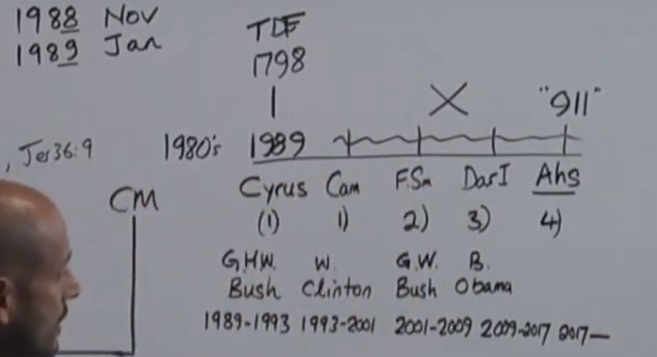 1988 Nov
1989 Jan
TDF
1798
X "911"
, Jer 36:9
1980's 1989
CM
Cyrus Cam F.Sm Dar I Ahs
(1) 1) 2) 3) 4)
G.H.W. W. G.W. B.
Bush Clinton Bush Obama
1989-1993 1993-2001 2001-2009 2009-2017 2017—